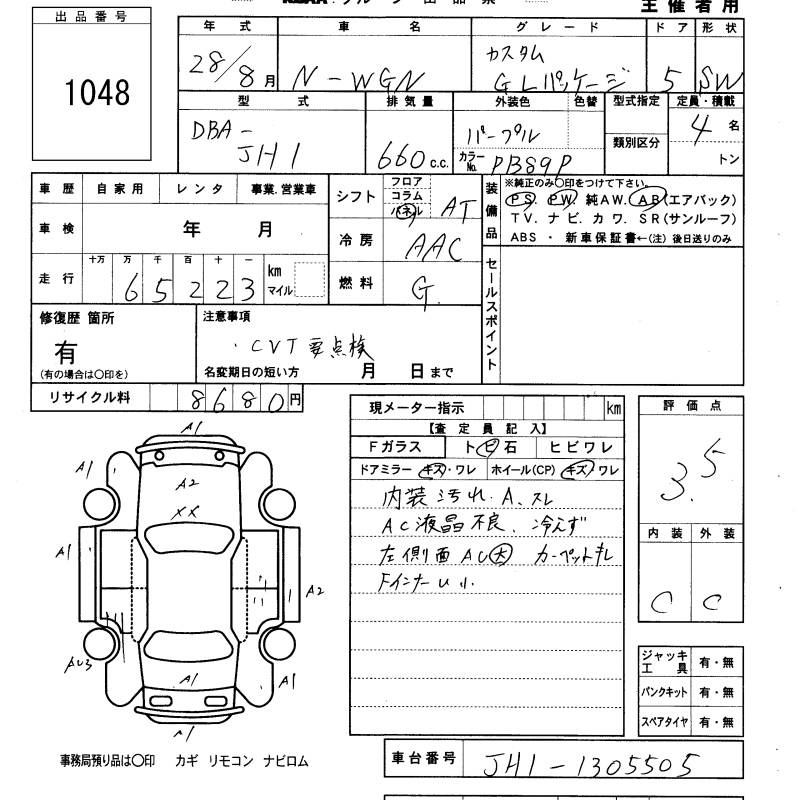 出品番号
1048
主催者用
年式 車名 グレード ドア 形状
28/8月 N-WGN カスタム GLパッケージ 5 SW
型式 排気量 外装色 色替 型式指定 定員・積載
類別区分
DBA-JH1 660c.c. パープル カラーNo. PB89P 4名
トン
車歴 自家用 レンタ 事業.営業車
車検 年 月
走行 十万 万 千 百 十 一
65223 km マイル
シフト フロア コラム パネル AT
冷房 AAC
燃料 G
装備品 ※純正のみ○印をつけて下さい。
PS. PW. 純AW. AB(エアバック)
TV. ナビ. カワ. SR(サンルーフ)
ABS ・ 新車保証書←(注) 後日送りのみ
セールスポイント
修復歴 箇所
有
(有の場合は○印を)
注意事項
・CVT要点検
名変期日の短い方 月 日まで
リサイクル料 8680円
現メーター指示 km
【査定員記入】
Fガラス トビ石 ヒビワレ
ドアミラー キズ・ワレ ホイール(CP) キズ・ワレ
内装汚れ、A、スレ
AC液晶不良、冷えず
左側面AU大 カーペットキレ
FインナーU小
評価点
3.5
内装 外装
C C
A1
A1
A2
XX
A1
A2
AU3
A1
A1
A1
ジャッキ工具 有・無
パンクキット 有・無
スペアタイヤ 有・無
事務局預り品は○印 カギ リモコン ナビロム
車台番号 JH1-1305505